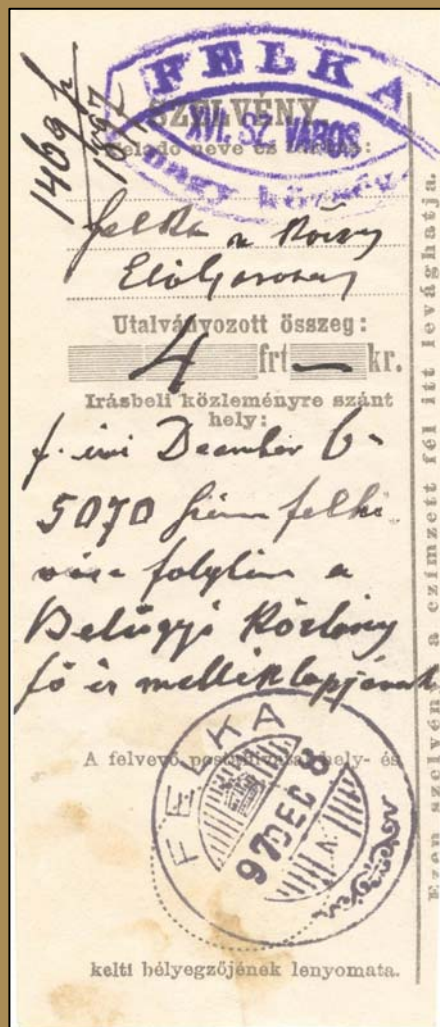 FELKA
XVI. SZ. VÁROS
nagy község
SZELVÉNY
Feladó neve és
1469
felka n Község
Elöljáróság
Utalványozott összeg:
4 frt — kr.
Irásbeli közleményre szánt
hely:
f. évi December 6-
5070 felhi
vása folytán a
Belügyi Közlöny
fő és melléklapjának
FELKA
A felvevő hely- és
97 DEC 8
kelti bélyegzőjének lenyomata.
Ezen szelvényt a czímzett fél itt levághatja.